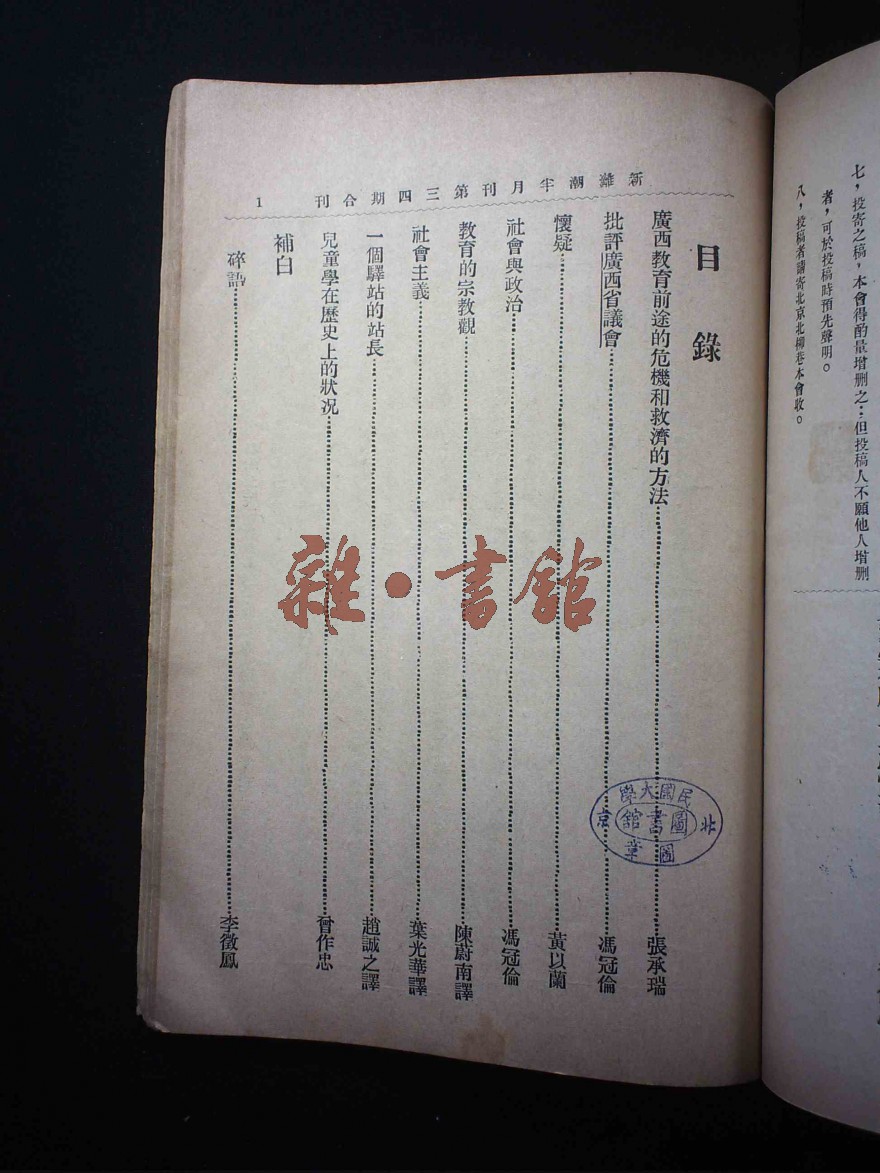 七，投寄之稿，本會得酌量增删之：但投稿人不願他人增删
者，可於投稿時預先聲明。
八，投稿者請寄北京北柳巷本會收。
新灕潮半月刊第三四期合刊 1
目錄
廣西教育前途的危機和救濟的方法……張承瑞
批評廣西省議會……馮冠倫
懷疑……黃以蘭
社會與政治……馮冠倫
教育的宗教觀……陳蔚南譯
社會主義……葉光華譯
一個驛站的站長……趙誠之譯
兒童學在歷史上的狀況……曾作忠
補白
碎語……李徵鳳
民國大學
北京
圖書館
圖章
雜·書館